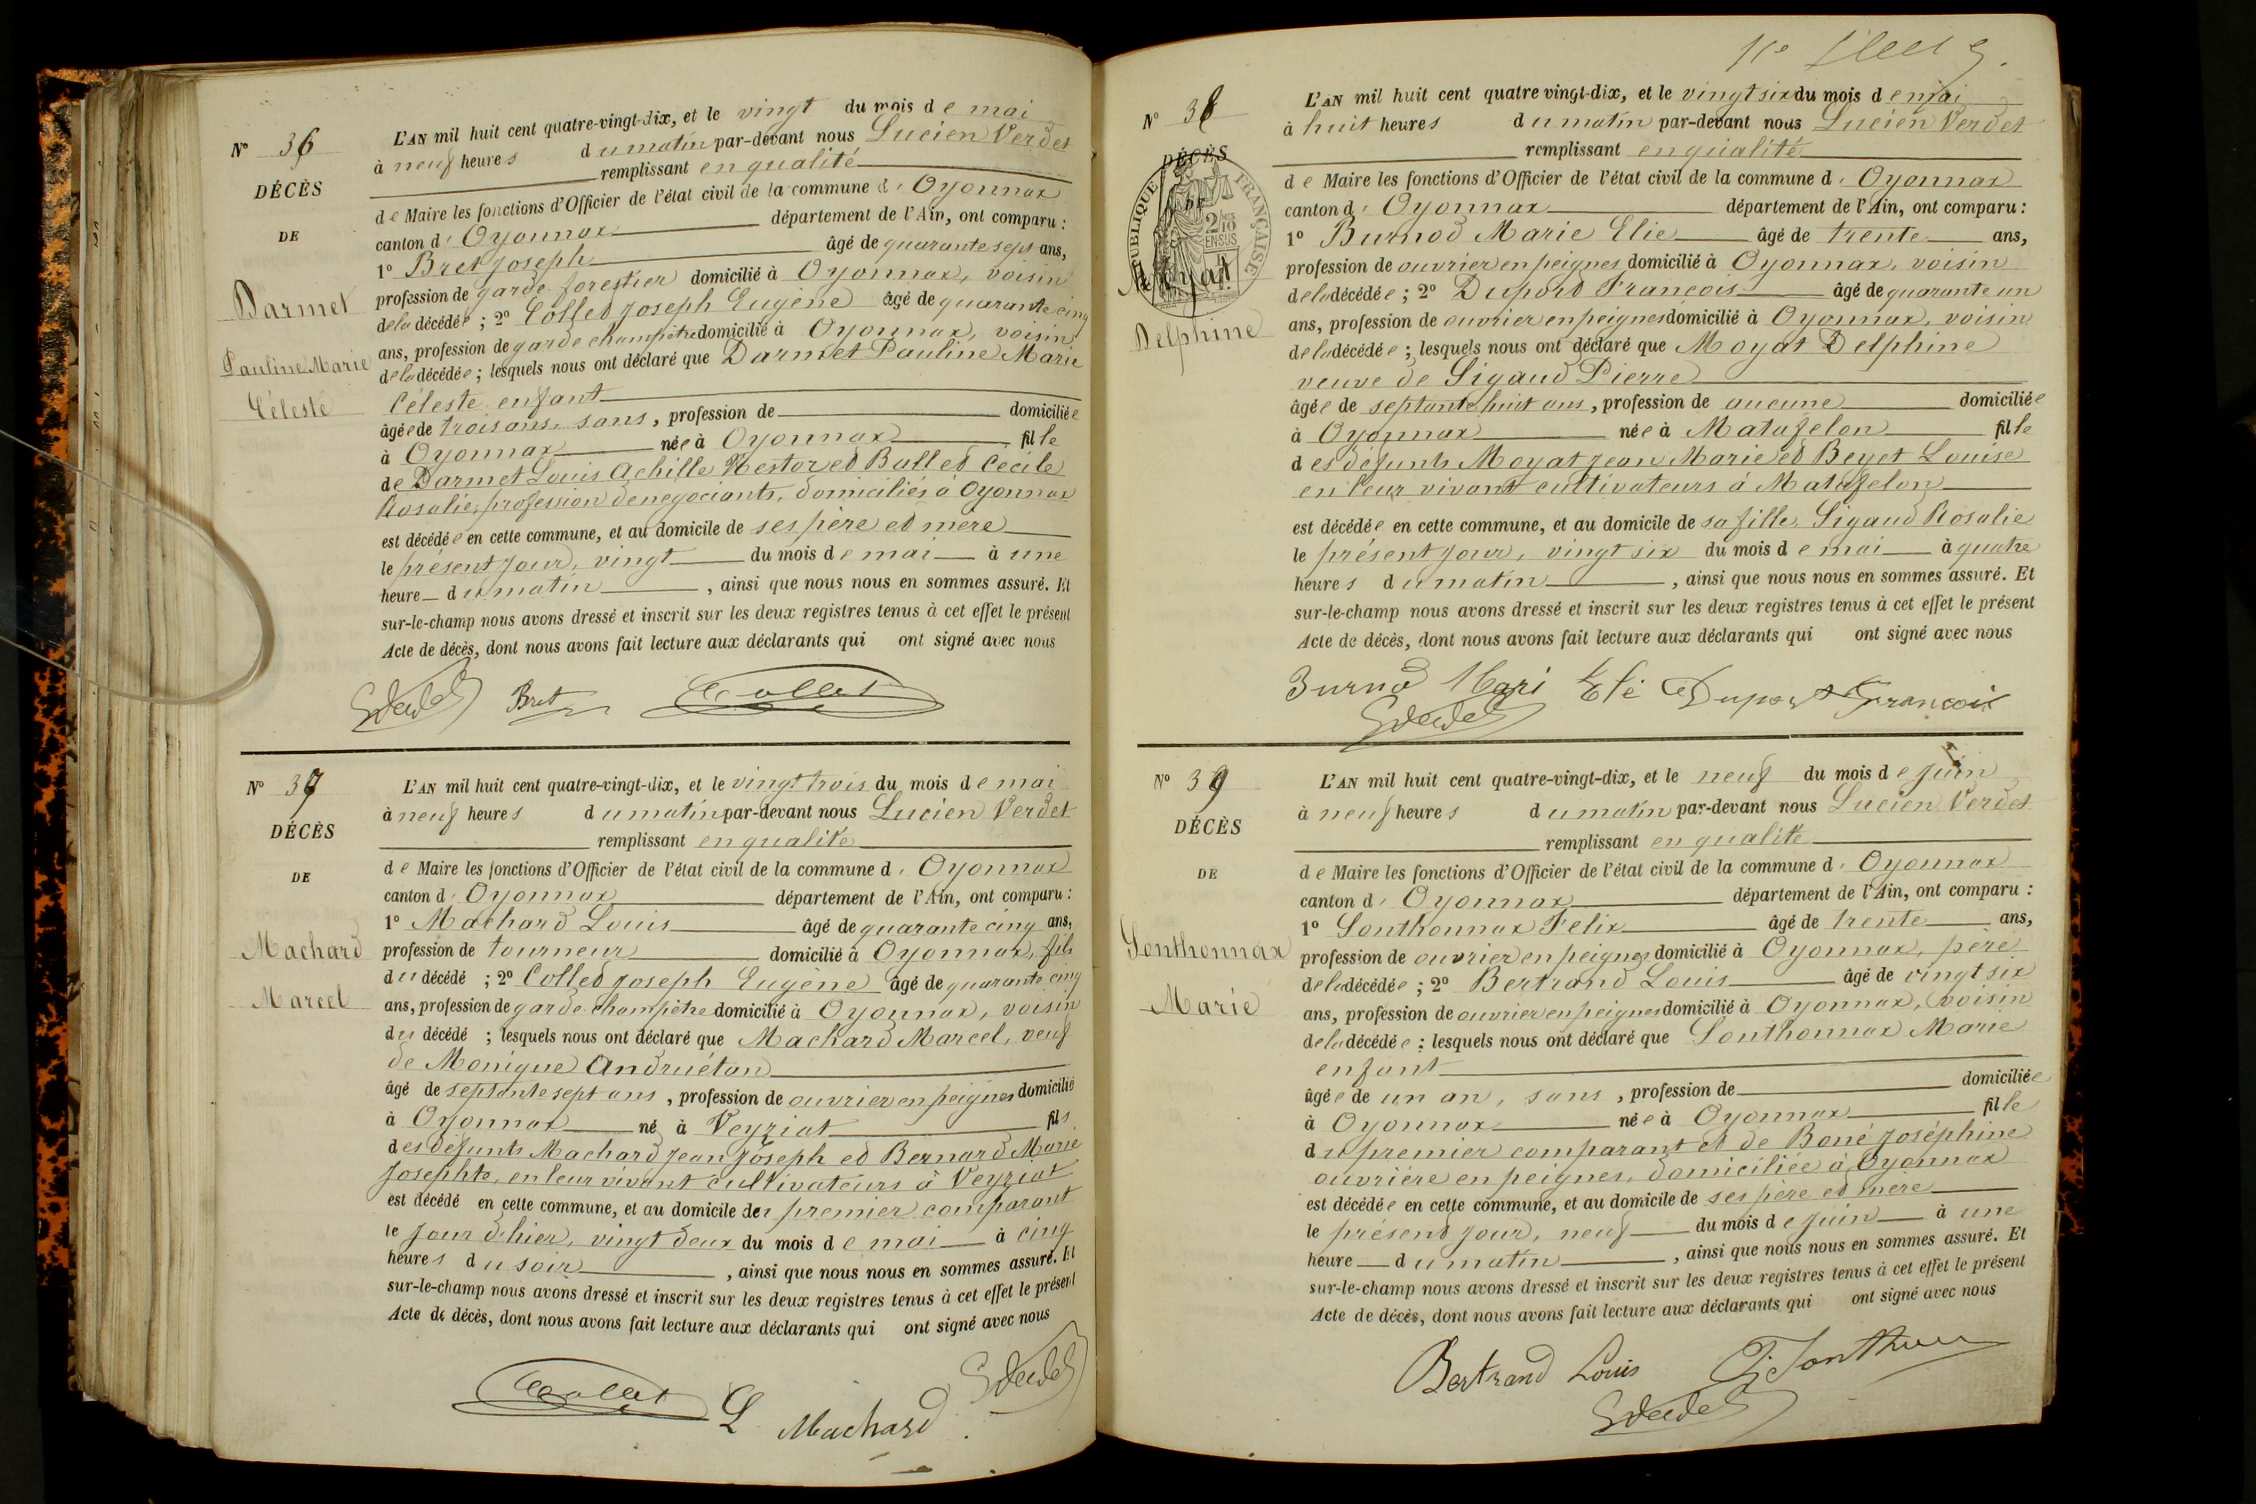 N° 36
DÉCÈS
DE
Darmet
Pauline Marie
Céleste
L'AN mil huit cent quatre-vingt-dix, et le vingt du mois de mai
à neuf heures du matin par-devant nous Lucien Verdet
remplissant en qualité
de Maire les fonctions d'Officier de l'état civil de la commune d'Oyonnax
canton d'Oyonnax département de l'Ain, ont comparu :
1° Bret Joseph âgé de quarante sept ans,
profession de garde forestier domicilié à Oyonnax, voisin
de la décédée ; 2° Collet Joseph Eugène âgé de quarante cinq
ans, profession de garde champêtre domicilié à Oyonnax, voisin
de la décédée ; lesquels nous ont déclaré que Darmet Pauline Marie
Céleste enfant
âgée de trois ans, sans, profession de domiciliée
à Oyonnax née à Oyonnax fille
de Darmet Louis Achille Nestor et Bullet Cécile
Rosalie, profession de négociants, domiciliés à Oyonnax
est décédée en cette commune, et au domicile de ses père et mère
le présent jour, vingt du mois de mai à une
heure du matin, ainsi que nous nous en sommes assuré. Et
sur-le-champ nous avons dressé et inscrit sur les deux registres tenus à cet effet le présent
Acte de décès, dont nous avons fait lecture aux déclarants qui ont signé avec nous
Bret Collet
N° 37
DÉCÈS
DE
Machard
Marcel
L'AN mil huit cent quatre-vingt-dix, et le vingt trois du mois de mai
à neuf heures du matin par-devant nous Lucien Verdet
remplissant en qualité
de Maire les fonctions d'Officier de l'état civil de la commune d'Oyonnax
canton d'Oyonnax département de l'Ain, ont comparu :
1° Machard Louis âgé de quarante cinq ans,
profession de tourneur domicilié à Oyonnax, fils
du décédé ; 2° Collet Joseph Eugène âgé de quarante cinq
ans, profession de garde champêtre domicilié à Oyonnax, voisin
du décédé ; lesquels nous ont déclaré que Machard Marcel, veuf
de Monique Andruétan
âgé de septante sept ans, profession de ouvrier en peignes domicilié
à Oyonnax né à Veyziat fils
des défunts Machard Jean Joseph et Bernard Marie
Josephte, en leur vivant cultivateurs à Veyziat
est décédé en cette commune, et au domicile du premier comparant
le jour d'hier, vingt deux du mois de mai à cinq
heures du soir, ainsi que nous nous en sommes assuré. Et
sur-le-champ nous avons dressé et inscrit sur les deux registres tenus à cet effet le présent
Acte de décès, dont nous avons fait lecture aux déclarants qui ont signé avec nous
Collet L Machard
N° 38
DÉCÈS
DE
RÉPUBLIQUE FRANÇAISE
2/10 EN SUS
Moyat
Delphine
L'AN mil huit cent quatre vingt-dix, et le vingt six du mois de mai
à huit heures du matin par-devant nous Lucien Verdet
remplissant en qualité
de Maire les fonctions d'Officier de l'état civil de la commune d'Oyonnax
canton d'Oyonnax département de l'Ain, ont comparu :
1° Burnod Marie Elie âgé de trente ans,
profession de ouvrier en peignes domicilié à Oyonnax, voisin
de la décédée ; 2° Dupord François âgé de quarante un
ans, profession de ouvrier en peignes domicilié à Oyonnax, voisin
de la décédée ; lesquels nous ont déclaré que Moyat Delphine
veuve de Sigaud Pierre
âgée de septante huit ans, profession de aucune domiciliée
à Oyonnax née à Matafelon fille
des défunts Moyat Jean Marie et Beyet Louise
en leur vivant cultivateurs à Matafelon
est décédée en cette commune, et au domicile de sa fille, Sigaud Rosalie
le présent jour, vingt six du mois de mai à quatre
heures du matin, ainsi que nous nous en sommes assuré. Et
sur-le-champ nous avons dressé et inscrit sur les deux registres tenus à cet effet le présent
Acte de décès, dont nous avons fait lecture aux déclarants qui ont signé avec nous
Burnod Mari Elé Duport François
N° 39
DÉCÈS
DE
Sonthonnax
Marie
L'AN mil huit cent quatre-vingt-dix, et le neuf du mois de juin
à neuf heures du matin par-devant nous Lucien Verdet
remplissant en qualité
de Maire les fonctions d'Officier de l'état civil de la commune d'Oyonnax
canton d'Oyonnax département de l'Ain, ont comparu :
1° Sonthonnax Felix âgé de trente ans,
profession de ouvrier en peignes domicilié à Oyonnax, père
de la décédée ; 2° Bertrand Louis âgé de vingt six
ans, profession de ouvrier en peignes domicilié à Oyonnax, voisin
de la décédée : lesquels nous ont déclaré que Sonthonnax Marie
enfant
âgée de un an, sans, profession de domiciliée
à Oyonnax née à Oyonnax fille
du premier comparant et de Boné Joséphine
ouvrière en peignes, domiciliée à Oyonnax
est décédée en cette commune, et au domicile de ses père et mère
le présent jour, neuf du mois de juin à une
heure du matin, ainsi que nous nous en sommes assuré. Et
sur-le-champ nous avons dressé et inscrit sur les deux registres tenus à cet effet le présent
Acte de décès, dont nous avons fait lecture aux déclarants qui ont signé avec nous
Bertrand Louis